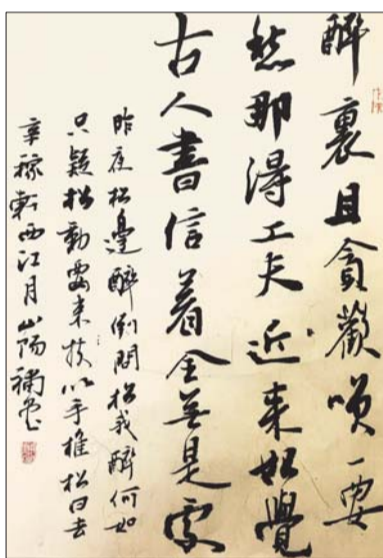 醉裏且貪歡咲要
愁那得工夫近来始覺
古人書信着全無是處
昨夜松邊醉倒問松我醉何如
只疑松動要来扶以手推松曰去
辛稼軒西江月山陽